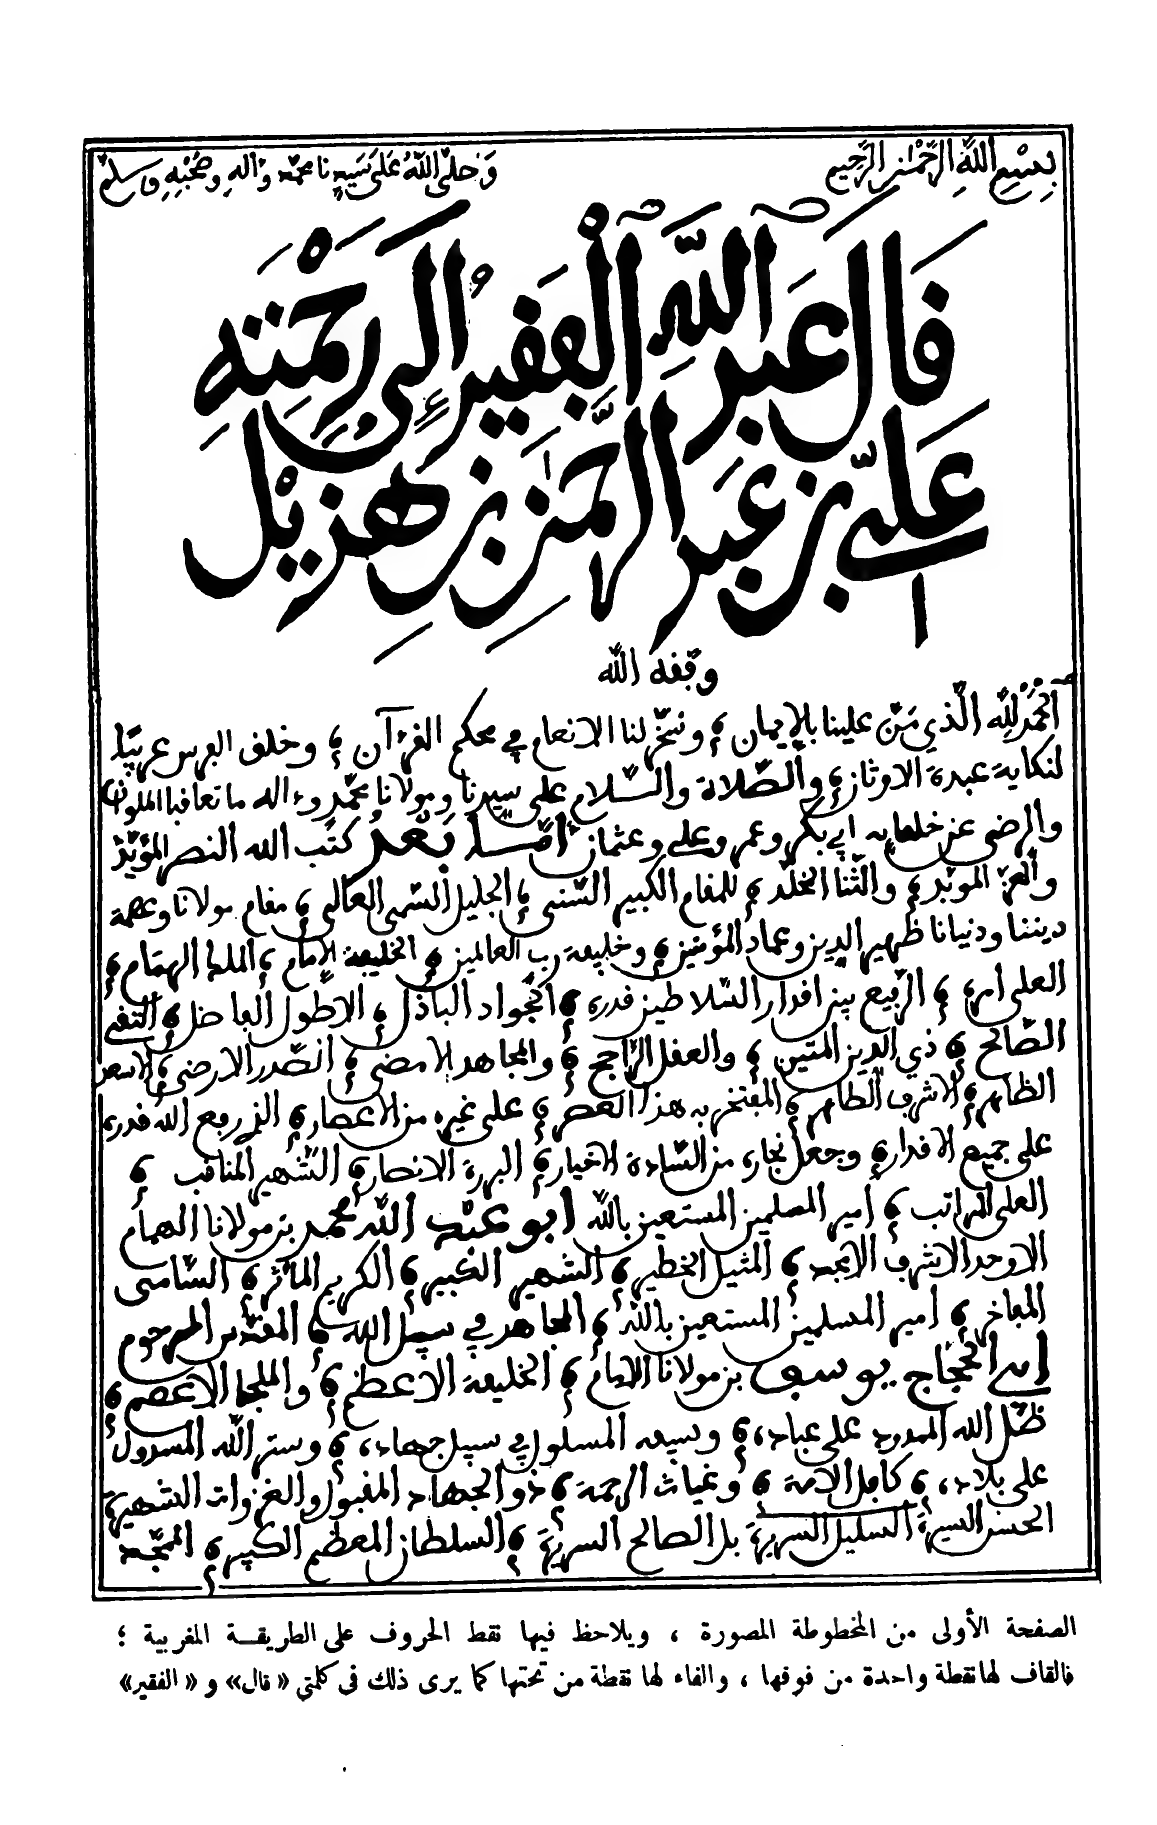 بسم الله الرحمن الرحيم وصلى الله على سيدنا محمد وآله وصحبه وسلم
قال عبد الله الفقير إلى رحمته
علي بن عبد الرحمن بن هزيل
وفقه الله
الحمد لله الذي من علينا بالإيمان وسخر لنا الانعام في محكم القرءان وخلق الفرس عربيا
لنكاية عبدة الاوثان والصلاة والسلام على سيدنا ومولانا محمد وءاله ما تعاقبا الملوان
والرضى عن خلفايه أبي بكر وعمر وعلي وعثمان أما بعد كتب الله النصر المؤيد
والعز المويد والثنا المخلد للمقام الكبير السني الجليل السمي العالي مقام مولانا وعصمة
ديننا ودنيانا ظهير الدين وعماد المؤمنين وخليفة رب العالمين الخليفة الإمام الملك الهمام
العلي امره الرفيع بين اقدار السلاطين قدره الجواد الباذل الاطول الفاضل التقي
الصالح ذي الدين المتين والعقل الراجح والمجاهد الامضى الصدر الارضى الاسعد
الظاهر الاشرف الطاهر المفتخر به هذا العصر على غيره من الاعصار الذي رفع الله قدره
على جميع الاقدار وجعل نجاره من السادة الاخيار البررة الانصار الشهير المناقب
العلي المراتب أمير المسلمين المستعين بالله ابو عبد الله محمد بن مولانا الهمام
الاوحد الاشرف الامجد المثيل الخطير الشهير الكبير الكريم المآثر السامي
المفاخر أمير المسلمين المستعين بالله المجاهد في سبيل الله المقدس المرحوم
ابي الحجاج يوسف بن مولانا الامام الخليفة الاعظم والملجا الاعصم
ظل الله الممدود على عباده وسيفه المسلول في سبيل جهاده وستر الله المسدول
على بلاده كافل الامة وغياث الرحمة ذو الجهاد المقبول والغزوات الشهيرة
الحسن السيرة السليل السريرة بل الصالح السريرة السلطان المعظم الكبير الممجد
الصفحة الأولى من المخطوطة المصورة ، ويلاحظ فيها نقط الحروف على الطريقة المغربية ؛
فالقاف لها نقطة واحدة من فوقها ، والفاء لها نقطة من تحتها كما يرى ذلك فى كلمتي «قال» و «الفقير»